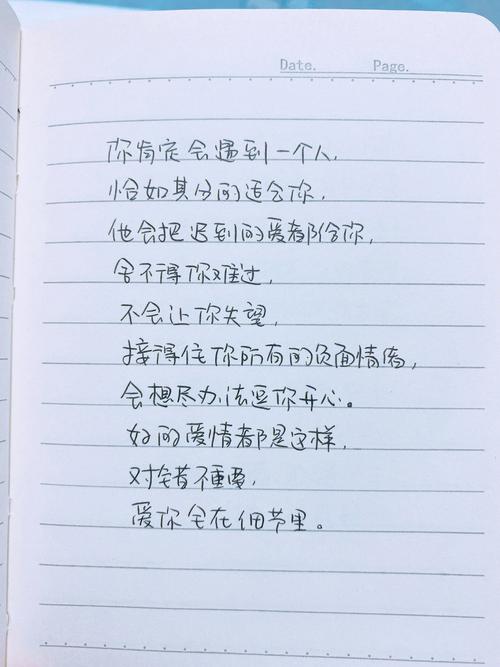 Date. Page.
你肯定会遇到一个人,
恰如其分的适合你,
他会把迟到的爱都给你,
舍不得你难过,
不会让你失望,
接得住你所有的负面情绪,
会想尽办法逗你开心。
好的爱情都是这样,
对错不重要,
爱你全在细节里。